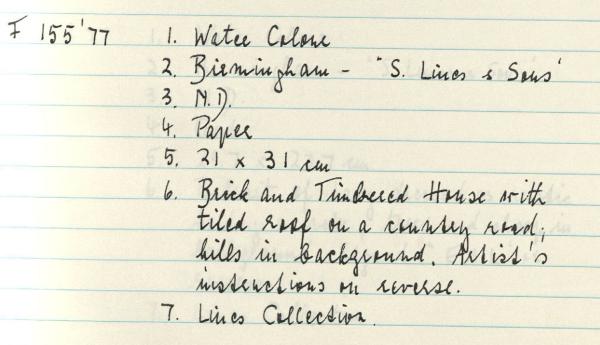 F 155'77 1. Water Colour
2. Birmingham - "S. Lines & Sons"
3. N.D.
4. Paper
5. 21 x 31 cm
6. Brick and Timbered House with
tiled roof on a country road,
hills in background. Artist's
instructions on reverse.
7. Lines Collection.